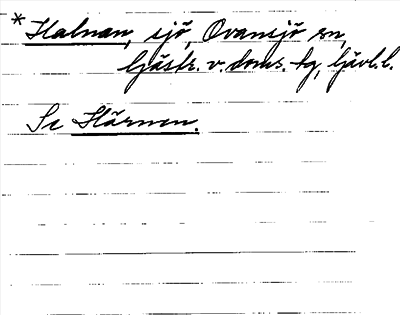 *Halnan, sjö, Ovansjö sn,
Gästr. v. doms.-tg, Gävl. l.
Se Härnen.